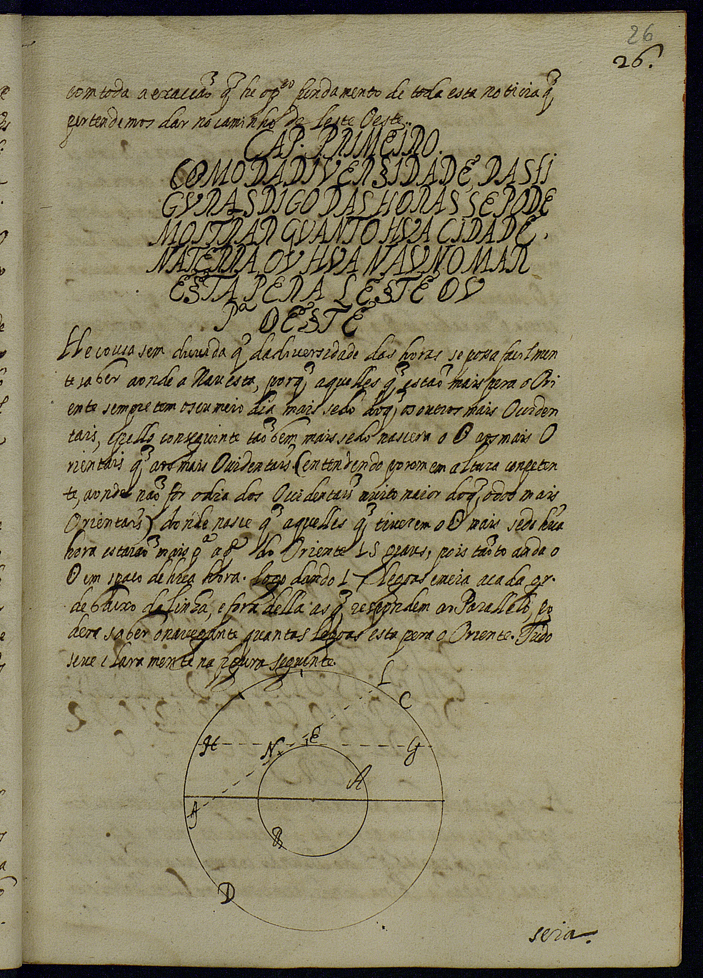 26
26.
com toda a exacçaõ q̃ he o pr.º fundamento de toda esta noticia q̃
pertendemos dar no caminho de Leste Oeste.
CAP. PRIMEIRO.
COMO DA DIVERSIDADE, DAS FI
GVRAS DIGO DAS HORAS SE PODE
MOSTRAR QVANTO HVA CIDADE.
NA TERRA OV HVA NAV NO MAR
ESTA PERA LESTE OV
Pª OESTE
He cousa sem duvida q̃ da diversidade das horas se possa facilmen
te saber aonde a Nau esta, porq̃ aquelles q̃ estaõ mais pera o Ori
ente sempre tem o seu meio dia mais sedo doq̃ os outros mais Ociden
tais, e pello conseguinte taõ bem mais sedo nascera o ☉ aos mais O
rientais q̃ aos mais Ocidentais (entendendo porem em altura conpeten
te, aonde naõ for o dia dos Ocidentais muito maior doq̃ o dos mais
Orientais) donde nasce q̃ aquelles q̃ tiverem o ☉ mais sedo hũa
hora estaraõ mais pª a pᵗᵉ do Oriente 15 graus, pois tanto anda o
☉ em spaço de hũa hora. Logo dando 17 legoas e meia a cada gr.
de baixo da Linha, e fora della as q̃ respondem ao Parallelo, po
dera saber o navegante quantas legoas esta pera o Oriente. Tudo
se ve claramente na figura seguinte.
L
C
H
N
E
G
A
A
B
D
seia